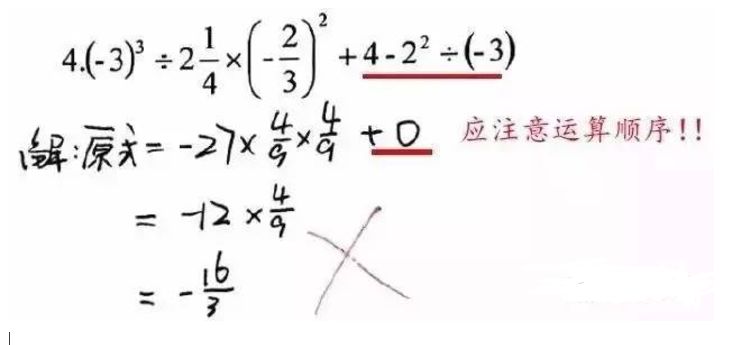 4.(-3)³ ÷ 2 1/4 × (-2/3)² + 4 - 2² ÷ (-3)
解:原式 = -27 × 4/9 × 4/9 + 0 应注意运算顺序!!
= -12 × 4/9
= -16/3